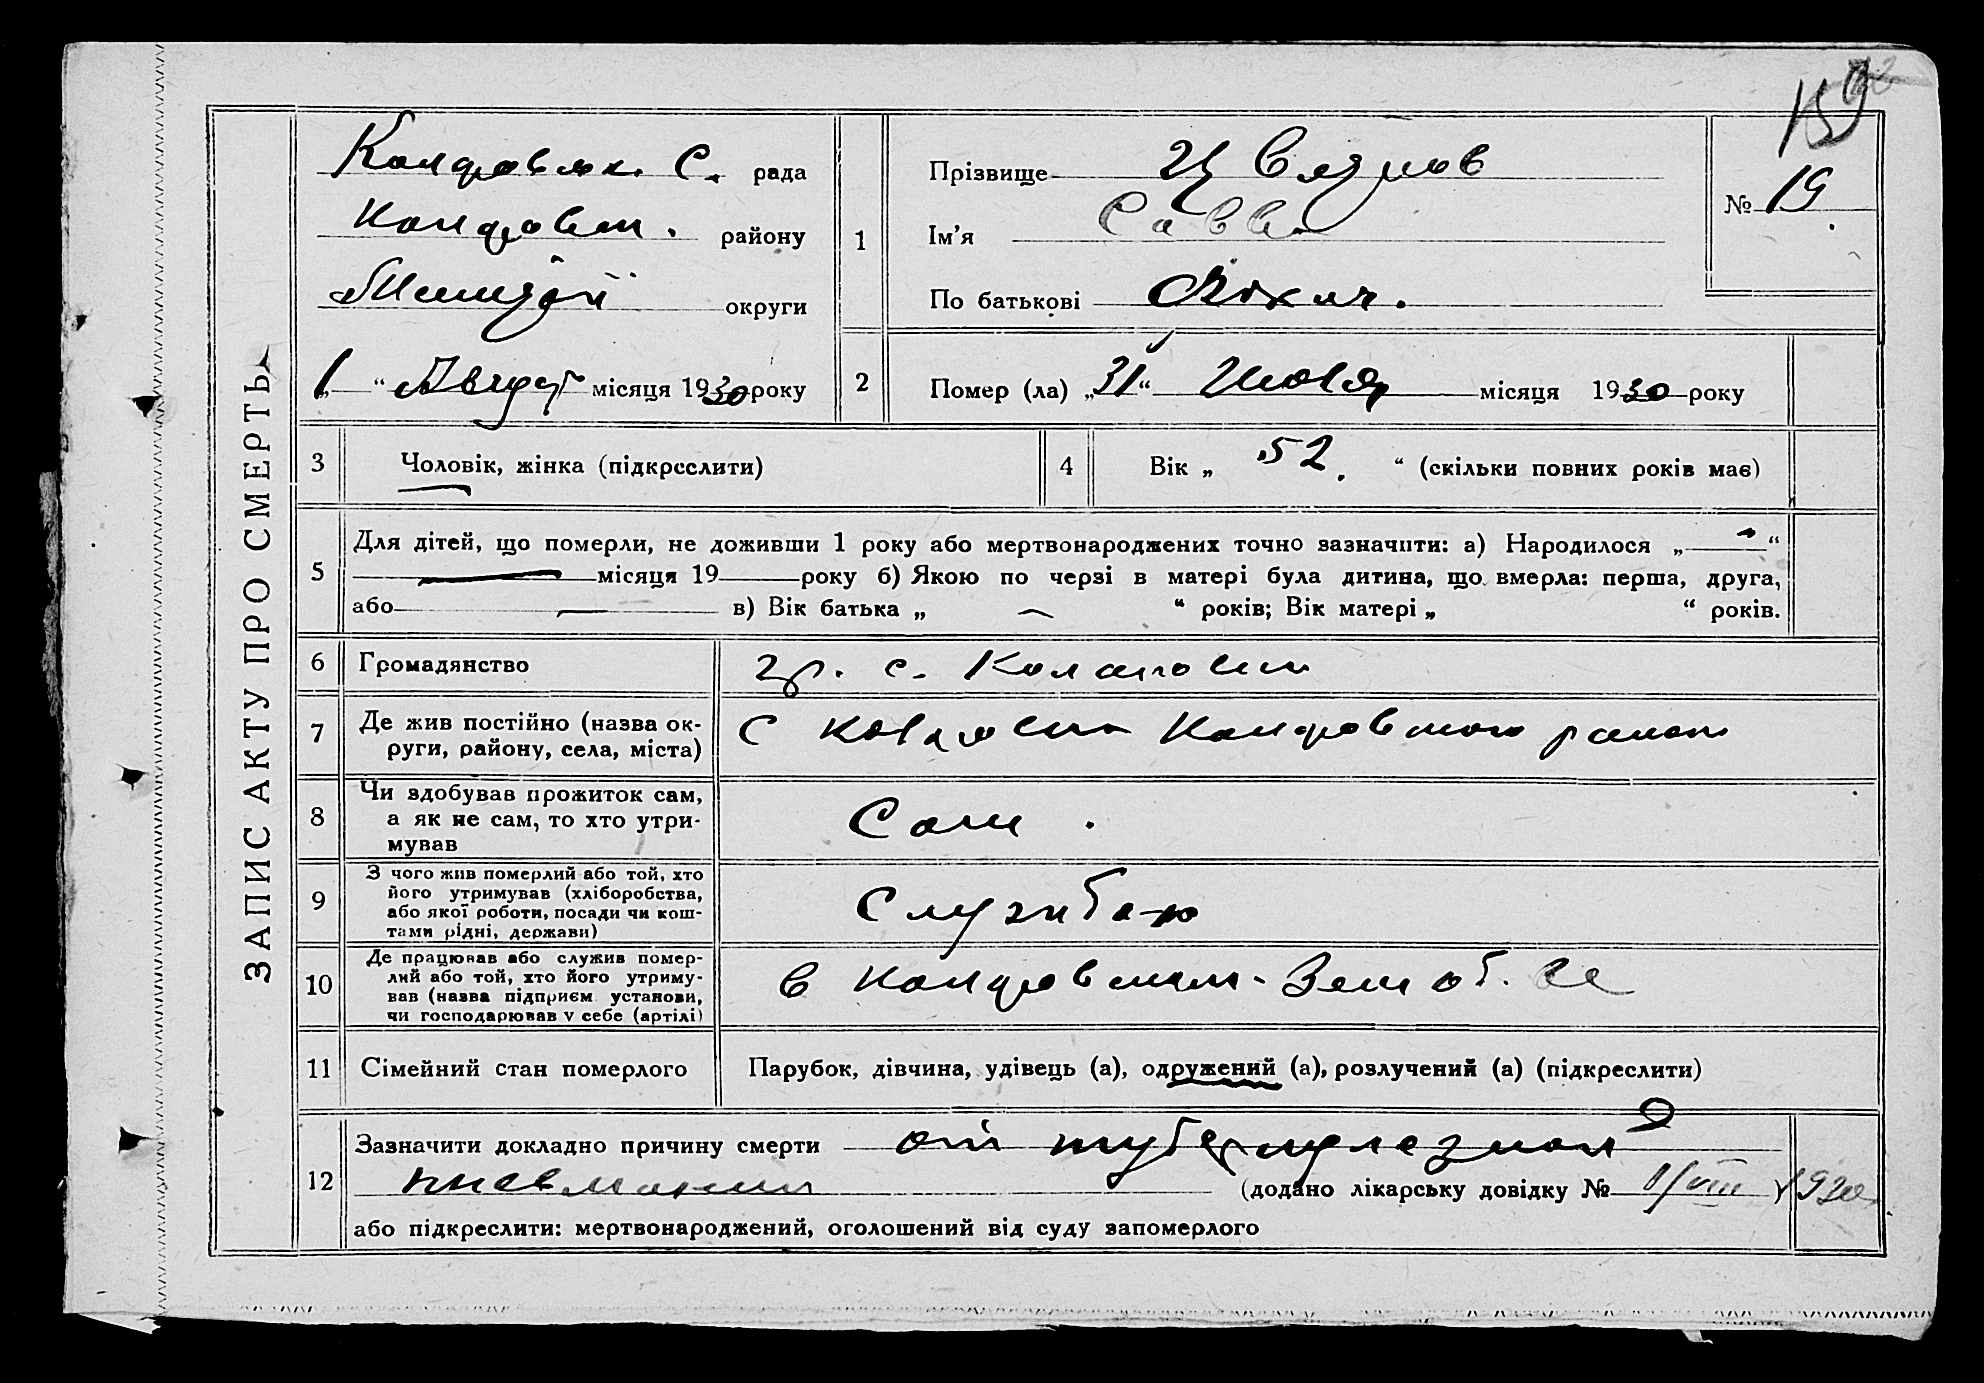 159
ЗАПИС АКТУ ПРО СМЕРТЬ
С. рада
району
округи
„1“ Август місяця 1930 року
1
Прізвище
Ім’я Савва
По батькові
№ 19.
2
Помер (ла) „31“ Июля місяця 1930 року
3
Чоловік, жінка (підкреслити)
4
Вік „ 52. “ (скільки повних років має)
5
Для дітей, що померли, не доживши 1 року або мертвонароджених точно зазначити: а) Народилося „ — “
— місяця 19 року б) Якою по черзі в матері була дитина, що вмерла: перша, друга,
або — в) Вік батька „ — “ років; Вік матері „ “ років.
6
Громадянство
гр. с.
7
Де жив постійно (назва ок-
руги, району, села, міста)
С
8
Чи здобував прожиток сам,
а як не сам, то хто утри-
мував
Сам.
9
З чого жив померлий або той, хто
його утримував (хліборобства,
або якої роботи, посади чи кош-
тами рідні, держави)
Службаю
10
Де працював або служив помер-
лий або той, хто його утриму-
вав (назва підприєм. установи,
чи господарював у себе (артілі)
в
11
Сімейний стан померлого
Парубок, дівчина, удівець (а), одружений (а), розлучений (а) (підкреслити)
12
Зазначити докладно причину смерти от туберкулезной
пневмонии (додано лікарську довідку № 1/VIII) 1930
або підкреслити: мертвонароджений, оголошений від суду запомерлого